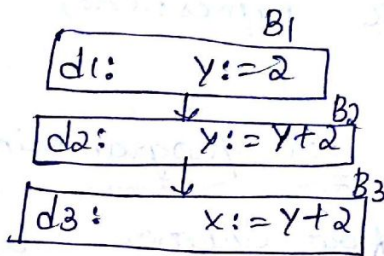 B1
d1: y:=2
B2
d2: y:=y+2
B3
d3: x:=y+2